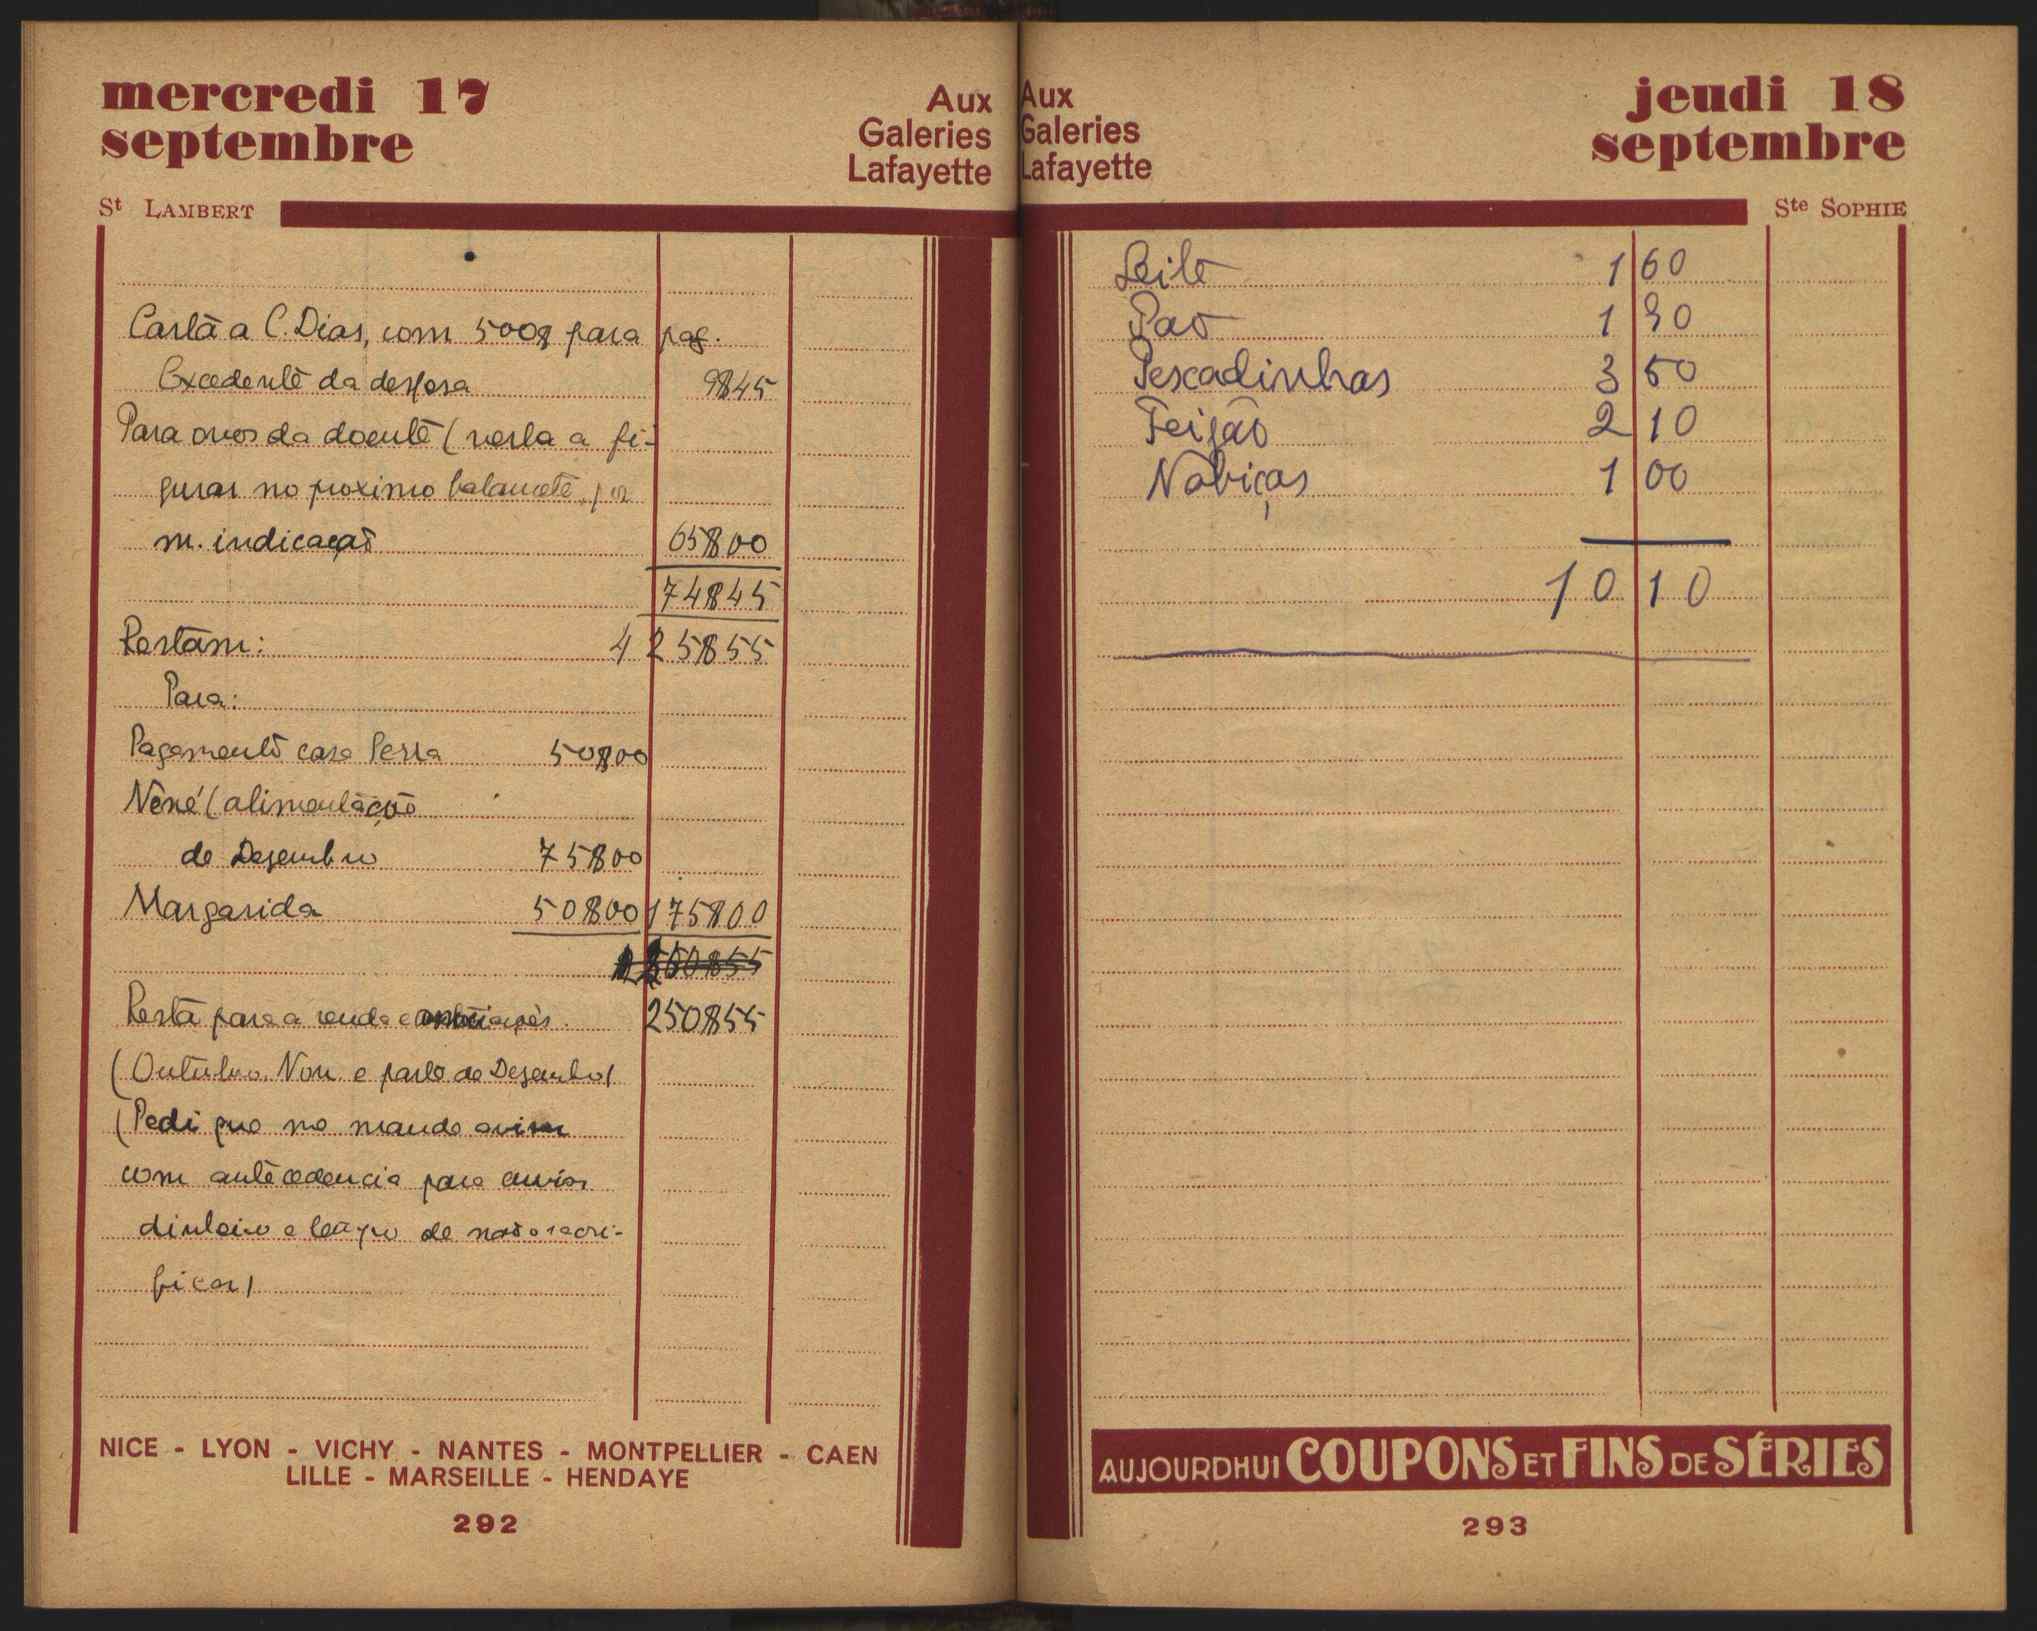 mercredi 17
septembre
Aux
Galeries
Lafayette
St LAMBERT
Carta a C. Dias, com 500$ para pag.
Excedente da despesa 9$45
Para ovos da doente (verba a fi-
gurar no proximo balancete, por
m. indicação 65$00
74$45
Restam: 425$55
Para:
Pagamento casa Pessa 50$00
Nené (alimentação
de Dezembro 75$00
Margarida 50$00 175$00
250$55
Resta para a renda e 250$55
(Outubro, Nov. e parte de Dezembro)
(Pedi que me mande avisar
com antecedencia para enviar
dinheiro e tempo de não o sacri-
ficar)
NICE - LYON - VICHY - NANTES - MONTPELLIER - CAEN
LILLE - MARSEILLE - HENDAYE
292
Aux
Galeries
Lafayette
jeudi 18
septembre
Ste SOPHIE
Leite 1 60
Pão 1 90
Pescadinhas 3 50
Feijão 2 10
Nabiças 1 00
10 10
AUJOURDHUI COUPONS ET FINS DE SÉRIES
293